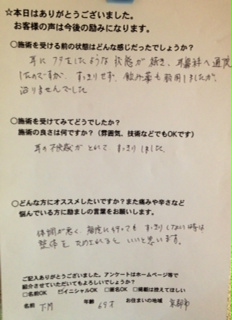 ☆本日はありがとうございました。
お客様の声は今後の励みになります。
○施術を受ける前の状態はどんな感じだったでしょうか？
耳にフタをしたような状態が続き、耳鼻科へ通院
したのですが、すっきりせず、飲み薬も服用しましたが、
治りませんでした
○施術を受けてみてどうでしたか？
施術の良さは何ですか？（雰囲気、技術などでもOKです）
耳の不快感がとれて すっきりしました
○どんな方にオススメしたいですか？また痛みや辛さなど
悩んでいる方に励ましの言葉をお願いします。
体調が悪く、病院に行っても すっきりしない時は
整体を
いいと思います。
ご記入ありがとうございました。アンケートはホームページ等で
紹介させていただいてもよろしいでしょうか？
□名前OK ☑イニシャルOK □匿名OK □掲載は控えてほしい
名前 T.M 年齢 69才 お住まいの地域